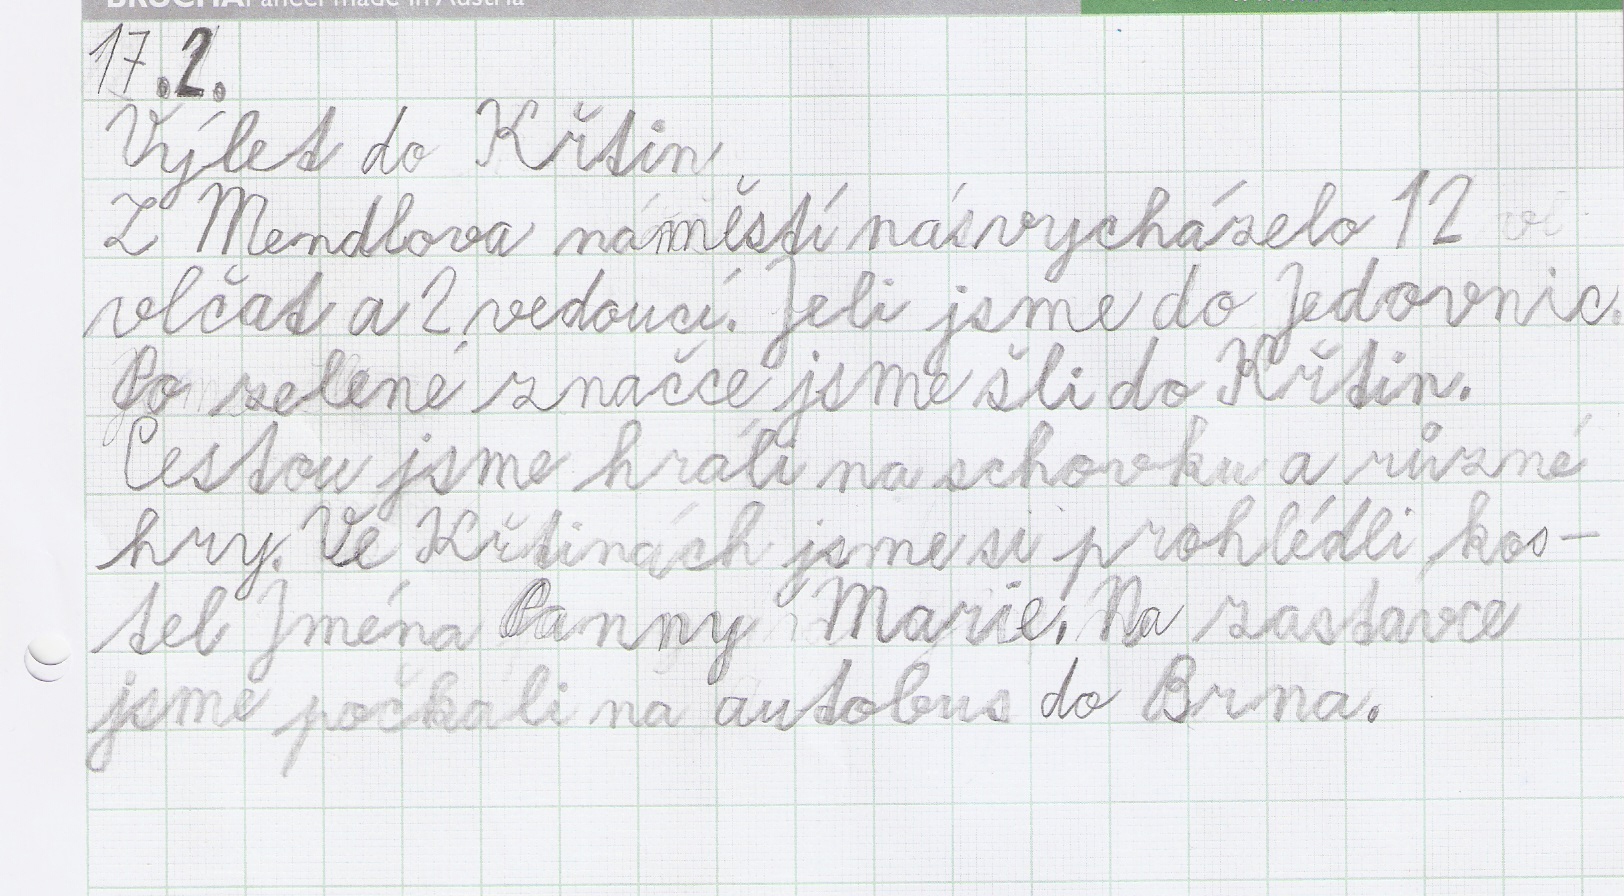 BRUCHA Paneel made in Austria
17.2.
Výlet do Křtin
Z Mendlova náměstí nás vycházelo 12
vlčat a 2 vedoucí. Jeli jsme do Jedovnic.
Po zelené značce jsme šli do Křtin.
Cestou jsme hráli na schovku a různé
hry. Ve Křtinách jsme si prohlédli kos-
tel Jména Panny Marie. Na zastávce
jsme počkali na autobus do Brna.